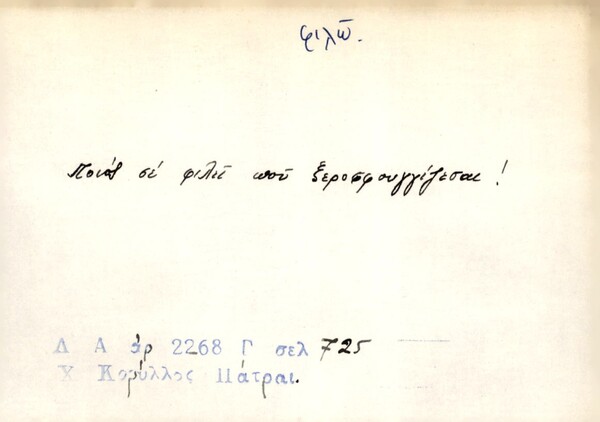 φιλῶ.
Ποιός σέ φιλεῖ πού ξεροσφουγγίζεσαι!
Λ Α ἀρ 2268 Γ σελ 725
Χ Κορύλλος Πάτραι.